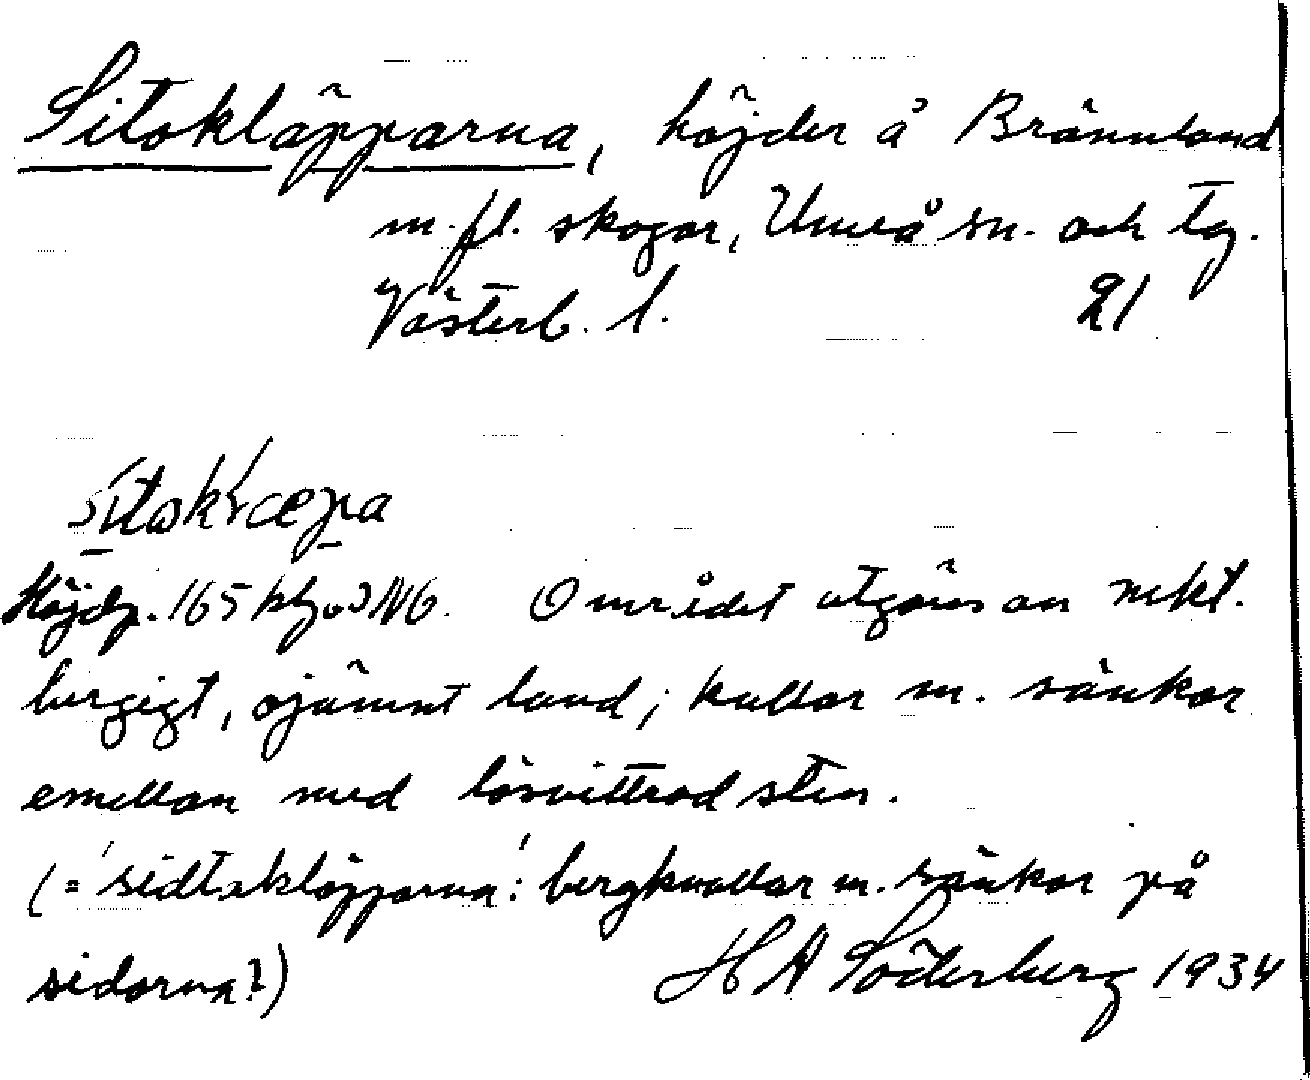 Sitokläpparna, höjder å Brännland
m. fl. skogar, Umeå sn. och tg.
Västerb. l. 21
Höjdp. 165 Området utgöres av mkt.
bergigt, ojämnt land; kullar m. sänkor
emellan med lösvittrad sten.
(= 'sidtsklöpparna': bergknallar m. sänkor på
sidorna?) H A Söderberg 1934